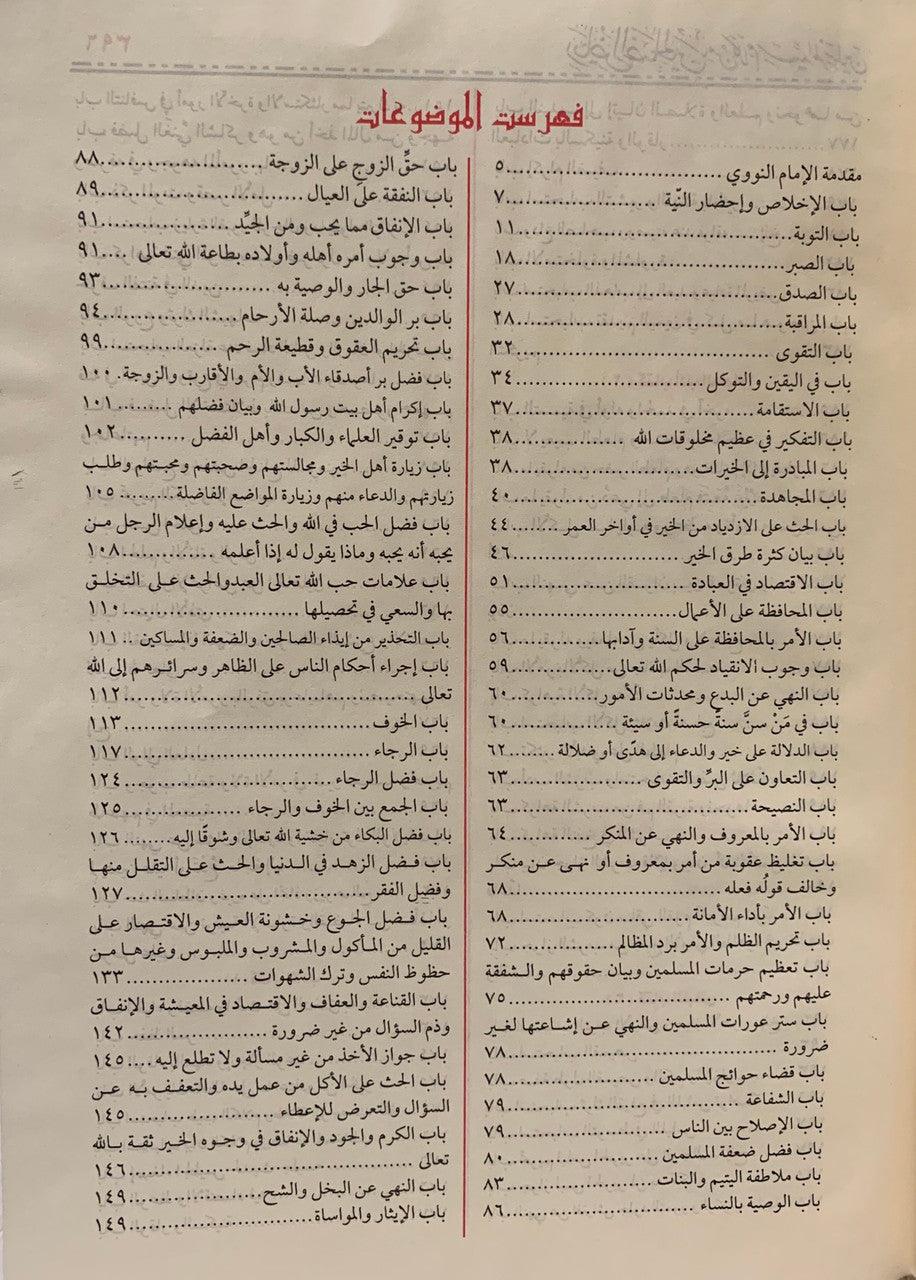 فهرست الموضوعات
مقدمة الإمام النووي ........................ ٥
باب الإخلاص وإحضار النّية ........................ ٧
باب التوبة ........................ ١١
باب الصبر ........................ ١٨
باب الصدق ........................ ٢٧
باب المراقبة ........................ ٢٨
باب التقوى ........................ ٣٢
باب في اليقين والتوكل ........................ ٣٤
باب الاستقامة ........................ ٣٧
باب التفكير في عظيم مخلوقات الله ................ ٣٨
باب المبادرة إلى الخيرات ........................ ٣٨
باب المجاهدة ........................ ٤٠
باب الحث على الازدياد من الخير في أواخر العمر ........ ٤٤
باب بيان كثرة طرق الخير ........................ ٤٦
باب الاقتصاد في العبادة ........................ ٥١
باب المحافظة على الأعمال ........................ ٥٥
باب الأمر بالمحافظة على السنة وآدابها ............ ٥٦
باب وجوب الانقياد لحكم الله تعالى ............ ٥٩
باب النهي عن البدع ومحدثات الأمور ............ ٦٠
باب في مَنْ سنَّ سنةً حسنةً أو سيئة ............ ٦٠
باب الدلالة على خير والدعاء إلى هدًى أو ضلالة ........ ٦٢
باب التعاون على البرِّ والتقوى ................ ٦٣
باب النصيحة ........................ ٦٣
باب الأمر بالمعروف والنهي عن المنكر ............ ٦٤
باب تغليظ عقوبة من أمر بمعروف أو نهى عن منكر
وخالف قولُه فعله ........................ ٦٨
باب الأمر بأداء الأمانة ........................ ٦٨
باب تحريم الظلم والأمر برد المظالم ............ ٧٢
باب تعظيم حرمات المسلمين وبيان حقوقهم والشفقة
عليهم ورحمتهم ........................ ٧٥
باب ستر عورات المسلمين والنهي عن إشاعتها لغير
ضرورة ........................ ٧٨
باب قضاء حوائج المسلمين ........................ ٧٨
باب الشفاعة ........................ ٧٩
باب الإصلاح بين الناس ........................ ٧٩
باب فضل ضعفة المسلمين ........................ ٨٠
باب ملاطفة اليتيم والبنات ........................ ٨٣
باب الوصية بالنساء ........................ ٨٦
باب حقِّ الزوجِ على الزوجة ................ ٨٨
باب النفقة على العيال ........................ ٨٩
باب الإنفاق مما يحب ومن الجيِّد ................ ٩١
باب وجوب أمره أهله وأولاده بطاعة الله تعالى ..... ٩١
باب حق الجار والوصية به ................ ٩٣
باب بر الوالدين وصلة الأرحام ................ ٩٤
باب تحريم العقوق وقطيعة الرحم ................ ٩٩
باب فضل بر أصدقاء الأب والأم والأقارب والزوجة. ١٠٠
باب إكرام أهل بيت رسول الله وبيان فضلهم ......... ١٠١
باب توقير العلماء والكبار وأهل الفضل .......... ١٠٢
باب زيارة أهل الخير ومجالستهم وصحبتهم ومحبتهم وطلب
زيارتهم والدعاء منهم وزيارة المواضع الفاضلة ......... ١٠٥
باب فضل الحب في الله والحث عليه وإعلام الرجل من
يحبه أنه يحبه وماذا يقول له إذا أعلمه ............ ١٠٨
باب علامات حب الله تعالى العبدوالحث على التخلق
بها والسعي في تحصيلها ........................ ١١٠
باب التحذير من إيذاء الصالحين والضعفة والمساكين .. ١١١
باب إجراء أحكام الناس على الظاهر وسرائرهم إلى الله
تعالى ........................ ١١٢
باب الخوف ........................ ١١٣
باب الرجاء ........................ ١١٧
باب فضل الرجاء ........................ ١٢٤
باب الجمع بين الخوف والرجاء ................ ١٢٥
باب فضل البكاء من خشية الله تعالى وشوقًا إليه ........ ١٢٦
باب فضل الزهد في الدنيا والحث على التقلل منها
وفضل الفقر ........................ ١٢٧
باب فضل الجوع وخشونة العيش والاقتصار على
القليل من المأكول والمشروب والملبوس وغيرها من
حظوظ النفس وترك الشهوات ................ ١٣٣
باب القناعة والعفاف والاقتصاد في المعيشة والإنفاق
وذم السؤال من غير ضرورة ................ ١٤٢
باب جواز الأخذ من غير مسألة ولا تطلع إليه .... ١٤٥
باب الحث على الأكل من عمل يده والتعفف به عن
السؤال والتعرض للإعطاء ................ ١٤٥
باب الكرم والجود والإنفاق في وجوه الخير ثقة بالله
تعالى ........................ ١٤٦
باب النهي عن البخل والشح ................ ١٤٩
باب الإيثار والمواساة ........................ ١٤٩